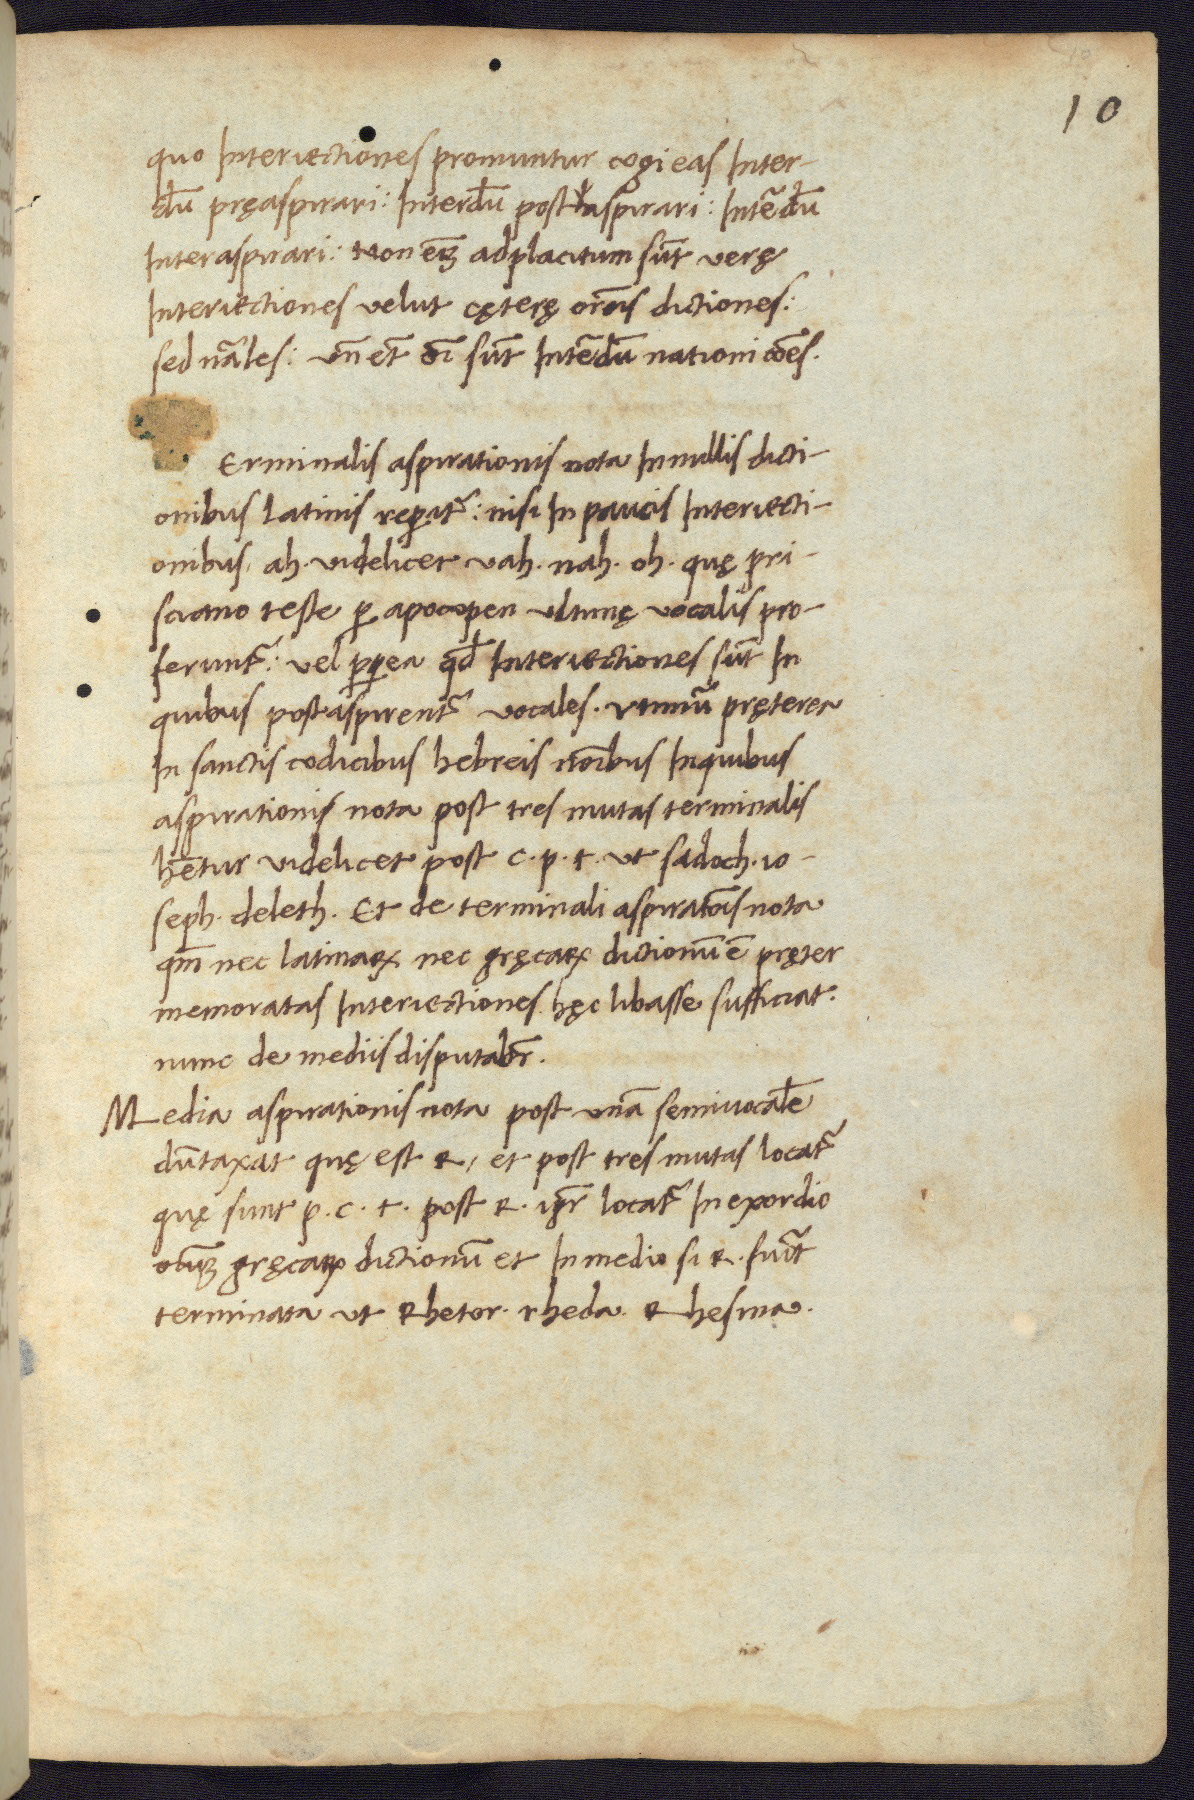 10
quo Interiectiones promuntur cogi eas Inter-
dū pręaspirari: Interdū post aspirari: Intēdū
Interaspirari: Non eīꝫ ad placitum sūt verę
Interiectiones velut cęterę orōnis dictiones:
sed nāles: vn̄ et oī sūt Intēdū nationi cōes.
Erminalis aspirationis nota In nullis dicti-
onibus Latinis reꝑit᷑: nisi In paucis Interiecti-
onibus. ah. videlicet vah. nah. oh. quę pri-
sciano teste ꝑ apocopen vltimę vocalis pro-
ferunt᷑: vel ꝓꝑea qđ Interiectiones sūt In
quibus postaspirent᷑ vocales. vtimū pręterea
In sanctis codicibus hebreis nōibus In quibus
aspirationis nota post tres mutas terminalis
hētur videlicet post c. p. t. vt sadoch. io-
seph. deleth. Et de terminali aspiratōis nota
qm̄ nec latinaꝝ nec gręcaꝝ dictionū ē pręter
memoratas Interiectiones hęc libasse sufficiat.
nunc de mediis disputabr̄.
Media aspirationis nota post vnā semivocalē
dūtaxat quę est R, et post tres mutas locat᷑
quę sunt p. c. t. post R. igr̄ locat᷑ In exordio
oīuꝫ gręcaꝝ dictionū et In medio si R. fuīt
terminata vt Rhetor. rheda. Rhesma.